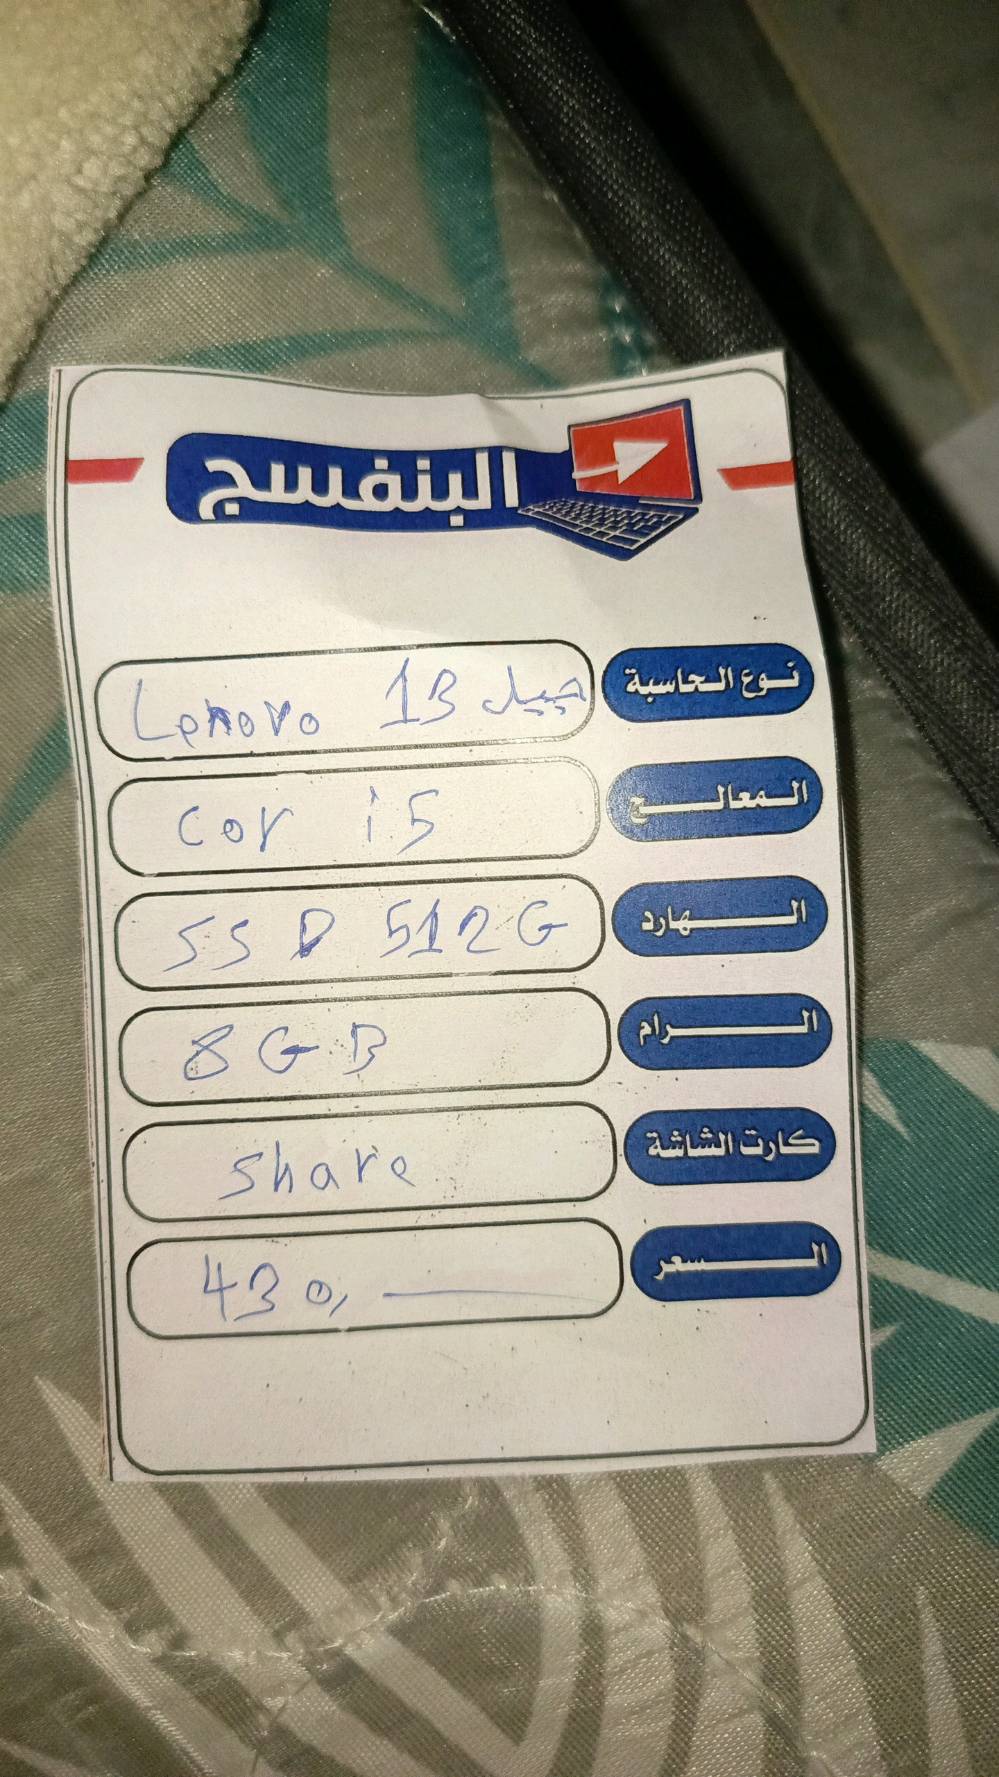 البنفسج
نوع الحاسبة Lenovo 13 جيل
المعالج cor i5
الهارد SSD 512G
الرام 8GB
كارت الشاشة share
السعر 430,